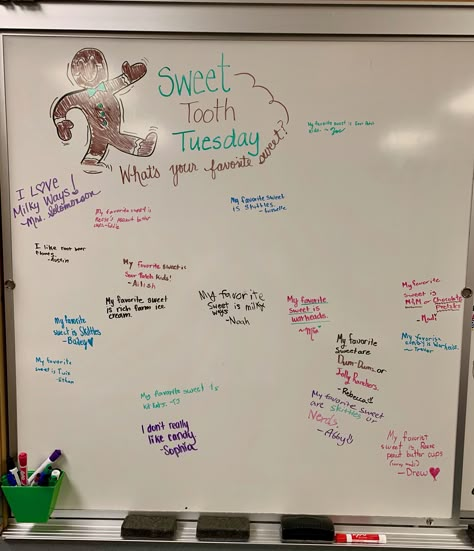 Sweet
Tooth
Tuesday
What's your favorite sweet?
My favorite sweet is Sour Patch
Kids.
I LOVE
Milky Ways!
-Mrs. Solomonson
My favorite sweet is
Reese's Peanut butter
cups
My favorite sweet
is skittles
I like root beer
floats.
-Austin
My favorite sweet is
Sour Patch kids!
My favorite sweet
is rich farm ice
cream.
My favorite
sweet is milky
ways
-Noah
My favorite
sweet is
warheads.
~Mia
My favorite
sweet is
M&M or Chocolate
Pretzels
My favorite
sweet is Skittles
-Bailey
My favorite
sweet is Twix
-Ethan
My favorite
candy is Warheads.
~Trevor
My favorite
Sweet are
Dum-Dums or
Jolly Ranchers.
-Rebecca
My favorite sweet is
kit kats. -TJ
My favorite sweet
are skittles or
Nerds.
-Abby
I don't really
like candy
-Sophia
My favorite
sweet is Reese
peanut butter cups
-Drew